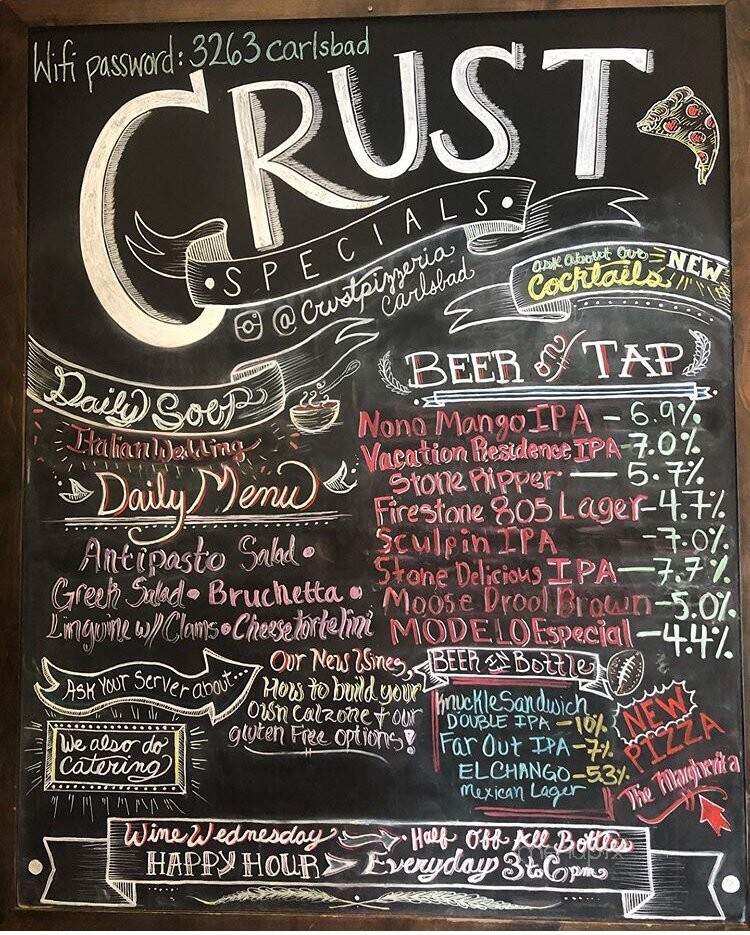 Wifi password: 3263 carlsbad
CRUST
SPECIALS
@Crustpizzeria
Carlsbad
Ask about our NEW
Cocktails
Daily Soup
Italian Wedding
Daily Menu
Antipasto Salad •
Greek Salad • Bruchetta •
Linguine w/ Clams • Cheese tortelini
BEER on TAP
Nono Mango IPA - 6.9%
Vacation Residence IPA - 7.0%
Stone Ripper - 5.7%
Firestone 805 Lager - 4.7%
Sculpin IPA - 7.0%
Stone Delicious IPA - 7.7%
Moose Drool Brown - 5.0%
MODELO Especial - 4.4%
Ask Your Server about...
Our New Wines,
How to build your
own Calzone + our
gluten Free options!
We also do
catering
BEER in Bottle
Knuckle Sandwich
DOUBLE IPA - 10%
Far Out IPA - 7%
EL CHANGO - 5.3%
Mexican Lager
NEW
PIZZA
The Margherita
Wine Wednesday • Half Off All Bottles
HAPPY HOUR Everyday 3 to 6 pm